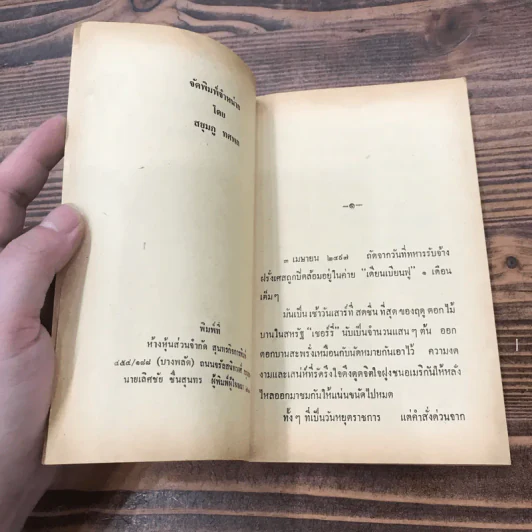 จัดพิมพ์จำหน่าย
โดย
สยุมภู ทศพล
พิมพ์ที่
ห้างหุ้นส่วนจำกัด
๔๕๔/๑๘๘ (บางพลัด)
นายเลิศชัย ชื่นสุนทร
—๑—
๓ เมษายน ๒๔๙๗ ถัดจากวันที่ทหารรับจ้าง
ฝรั่งเศสถูกปิดล้อมอยู่ในค่าย "เดียนเบียนฟู" ๑ เดือน
เต็มๆ
มันเป็นเช้าวันเสาร์ที่สดชื่นที่สุดของฤดูดอกไม้
บานในสหรัฐ "เชอร์รี่" นับเป็นจำนวนแสนๆ ต้น ออก
ดอกบานสะพรั่งเหมือนกับนัดหมายกันเอาไว้ ความงด
งามและเสน่ห์ที่รัดรึงใจดึงดูดจิตใจฝูงชนอเมริกันให้หลั่ง
ไหลออกมาชมกันให้แน่นขนัดไปหมด
ทั้งๆ ที่เป็นวันหยุดราชการ แต่คำสั่งด่วนจาก